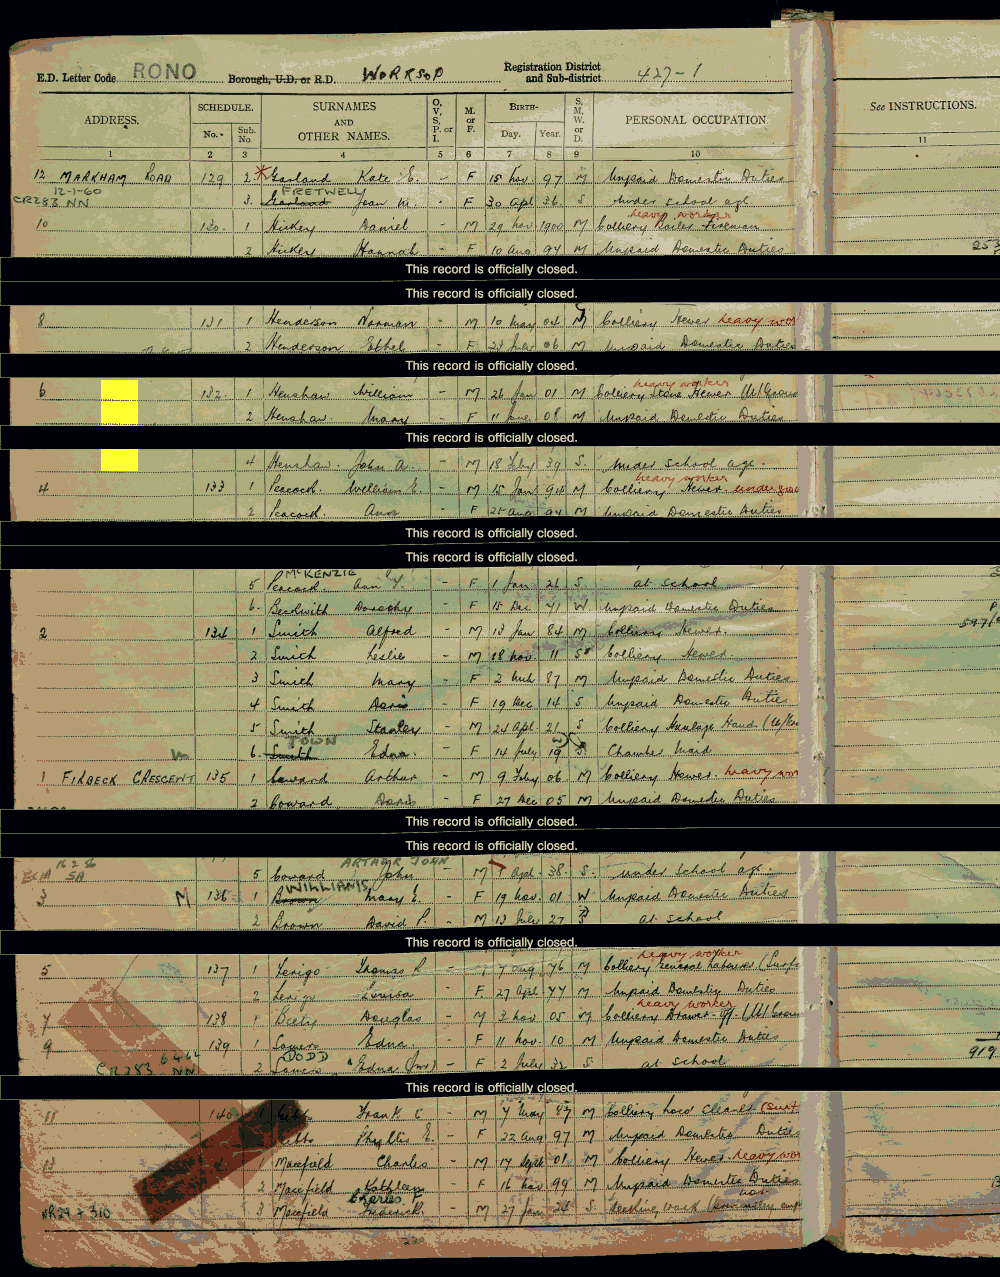 E.D. Letter Code RONO Borough, U.D. or R.D. WORKSOP Registration District and Sub-district 427-1
ADDRESS. SCHEDULE. No. Sub. No SURNAMES AND OTHER NAMES. O, V, S, P. or I. M. or F. BIRTH- Day. Year. S, M, W. or D. PERSONAL OCCUPATION. See INSTRUCTIONS.
1 2 3 4 5 6 7 8 9 10 11
12 MARKHAM ROAD 129 2 Garland Kate E. - F 15 Nov 97 M Unpaid Domestic Duties
12-1-60 FRETWELL
CR283 NN 3 Garland Jean M. - F 30 Apl 36 S under school age
heavy worker
10 130 1 Hickey Daniel - M 29 Nov 1900 M Colliery Boiler Fireman
2 Hickey Hannah - F 10 Aug 94 M Unpaid Domestic Duties
This record is officially closed.
This record is officially closed.
8 131 1 Henderson Norman - M 10 May 04 M Colliery Hewer heavy wor
2 Henderson Ethel - F 23 July 06 M Unpaid Domestic Duties
This record is officially closed.
heavy worker
6 132 1 Henshaw William - M 26 Jan 01 M Colliery Stone Hewer (U/Groun
2 Henshaw Mary - F 11 June 08 M Unpaid Domestic Duties
This record is officially closed.
4 Henshaw John A. - M 18 Feby 39 S. under school age.
heavy worker
4 133 1 Peacock William E. - M 15 Jan 94 M Colliery Hewer under
2 Peacock Ann - F 25 Aug 94 M Unpaid Domestic Duties
This record is officially closed.
This record is officially closed.
McKENZIE
5 Peacock Ann Y. - F 1 Jan 26 S at school
6. Beckwith Dorothy - F 15 Dec 71 W Unpaid Domestic Duties
2 134 1 Smith Alfred - M 13 Jan 84 M Colliery Hewer.
2 Smith Leslie - M 18 Nov. 11 S Colliery Hewer
3 Smith Mary - F 2 Mch 87 M Unpaid Domestic Duties
4 Smith Doris - F 19 Dec 14 S Unpaid Domestic Duties
5 Smith Stanley M 24 Apl 21 S Colliery Haulage Hand
TOWN
6. Smith Edna - F 14 July 19 S Chamber maid
1 FIRBECK CRESCENT 135 1 Coward Arthur - M 9 Feby 06 M Colliery Hewer. heavy wor
2 Coward Doris - F 27 Dec 05 M Unpaid Domestic Duties
This record is officially closed.
This record is officially closed.
ARTHUR JOHN
5 Coward John M 7 Apl 38 S. under school age.
WILLIAMS
3 M 136 1 Brown Mary E. - F 19 Nov. 01 W Unpaid Domestic Duties
2 Brown David P. - M 13 July 27 S at school
This record is officially closed.
heavy worker
5 137 1 Ferigo Thomas R - 7 Aug 76 M Colliery General Labourer (Surf
2 Louisa F 27 Apl 77 M Unpaid Domestic Duties
heavy worker
7 138 1 Beety Douglas - M 3 Nov 05 M Colliery Drawer-off. (U/Groun
9 139 1 Edna - F 11 Nov. 10 M Unpaid Domestic Duties
DODD
CR283 NN 2 Edna (Jnr) - F 2 July 32 S at school
This record is officially closed.
11 140 Frank C - M 7 May 87 M Colliery (Surf
Phyllis E. - F 22 Aug 97 M Unpaid Domestic Duties
13 Macefield Charles - M 17 Sept 01 M Colliery Hewer. heavy wor
2 Macefield Kathleen - F 16 Nov. 99 M Unpaid Domestic Duties
Charles F
NR29 + 310 3 Macefield Frederick - M 27 Jan 24 S Seeking work